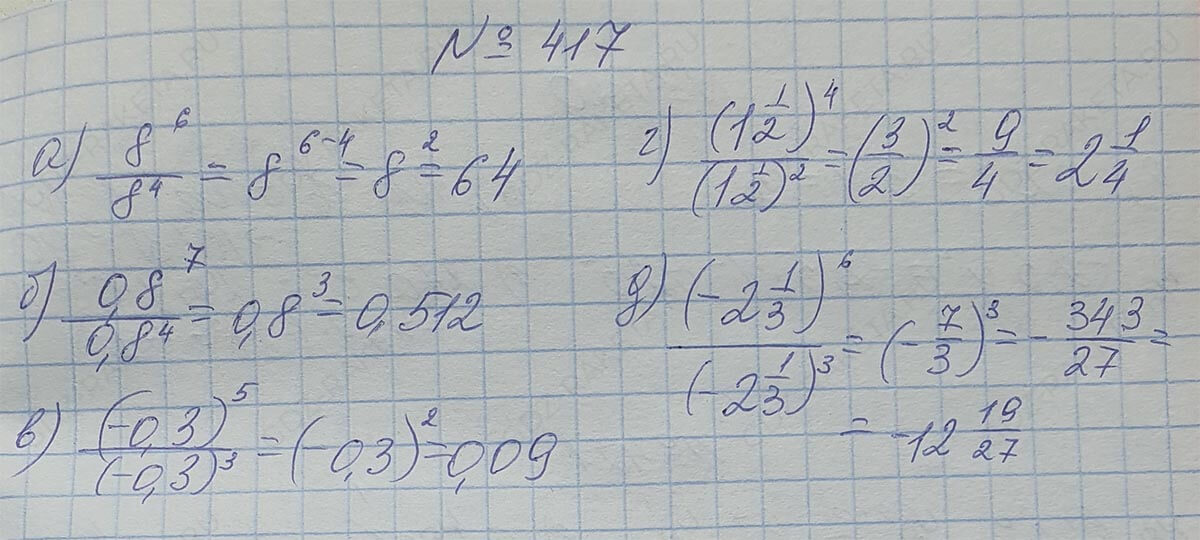 № 417
а) 8^6/8^4 = 8^(6-4) = 8^2 = 64
б) 0,8^7/0,8^4 = 0,8^3 = 0,512
в) (-0,3)^5/(-0,3)^3 = (-0,3)^2 = 0,09
г) (1 1/2)^4/(1 1/2)^2 = (3/2)^2 = 9/4 = 2 1/4
д) (-2 1/3)^6/(-2 1/3)^3 = (-7/3)^3 = - 343/27 =
= -12 19/27